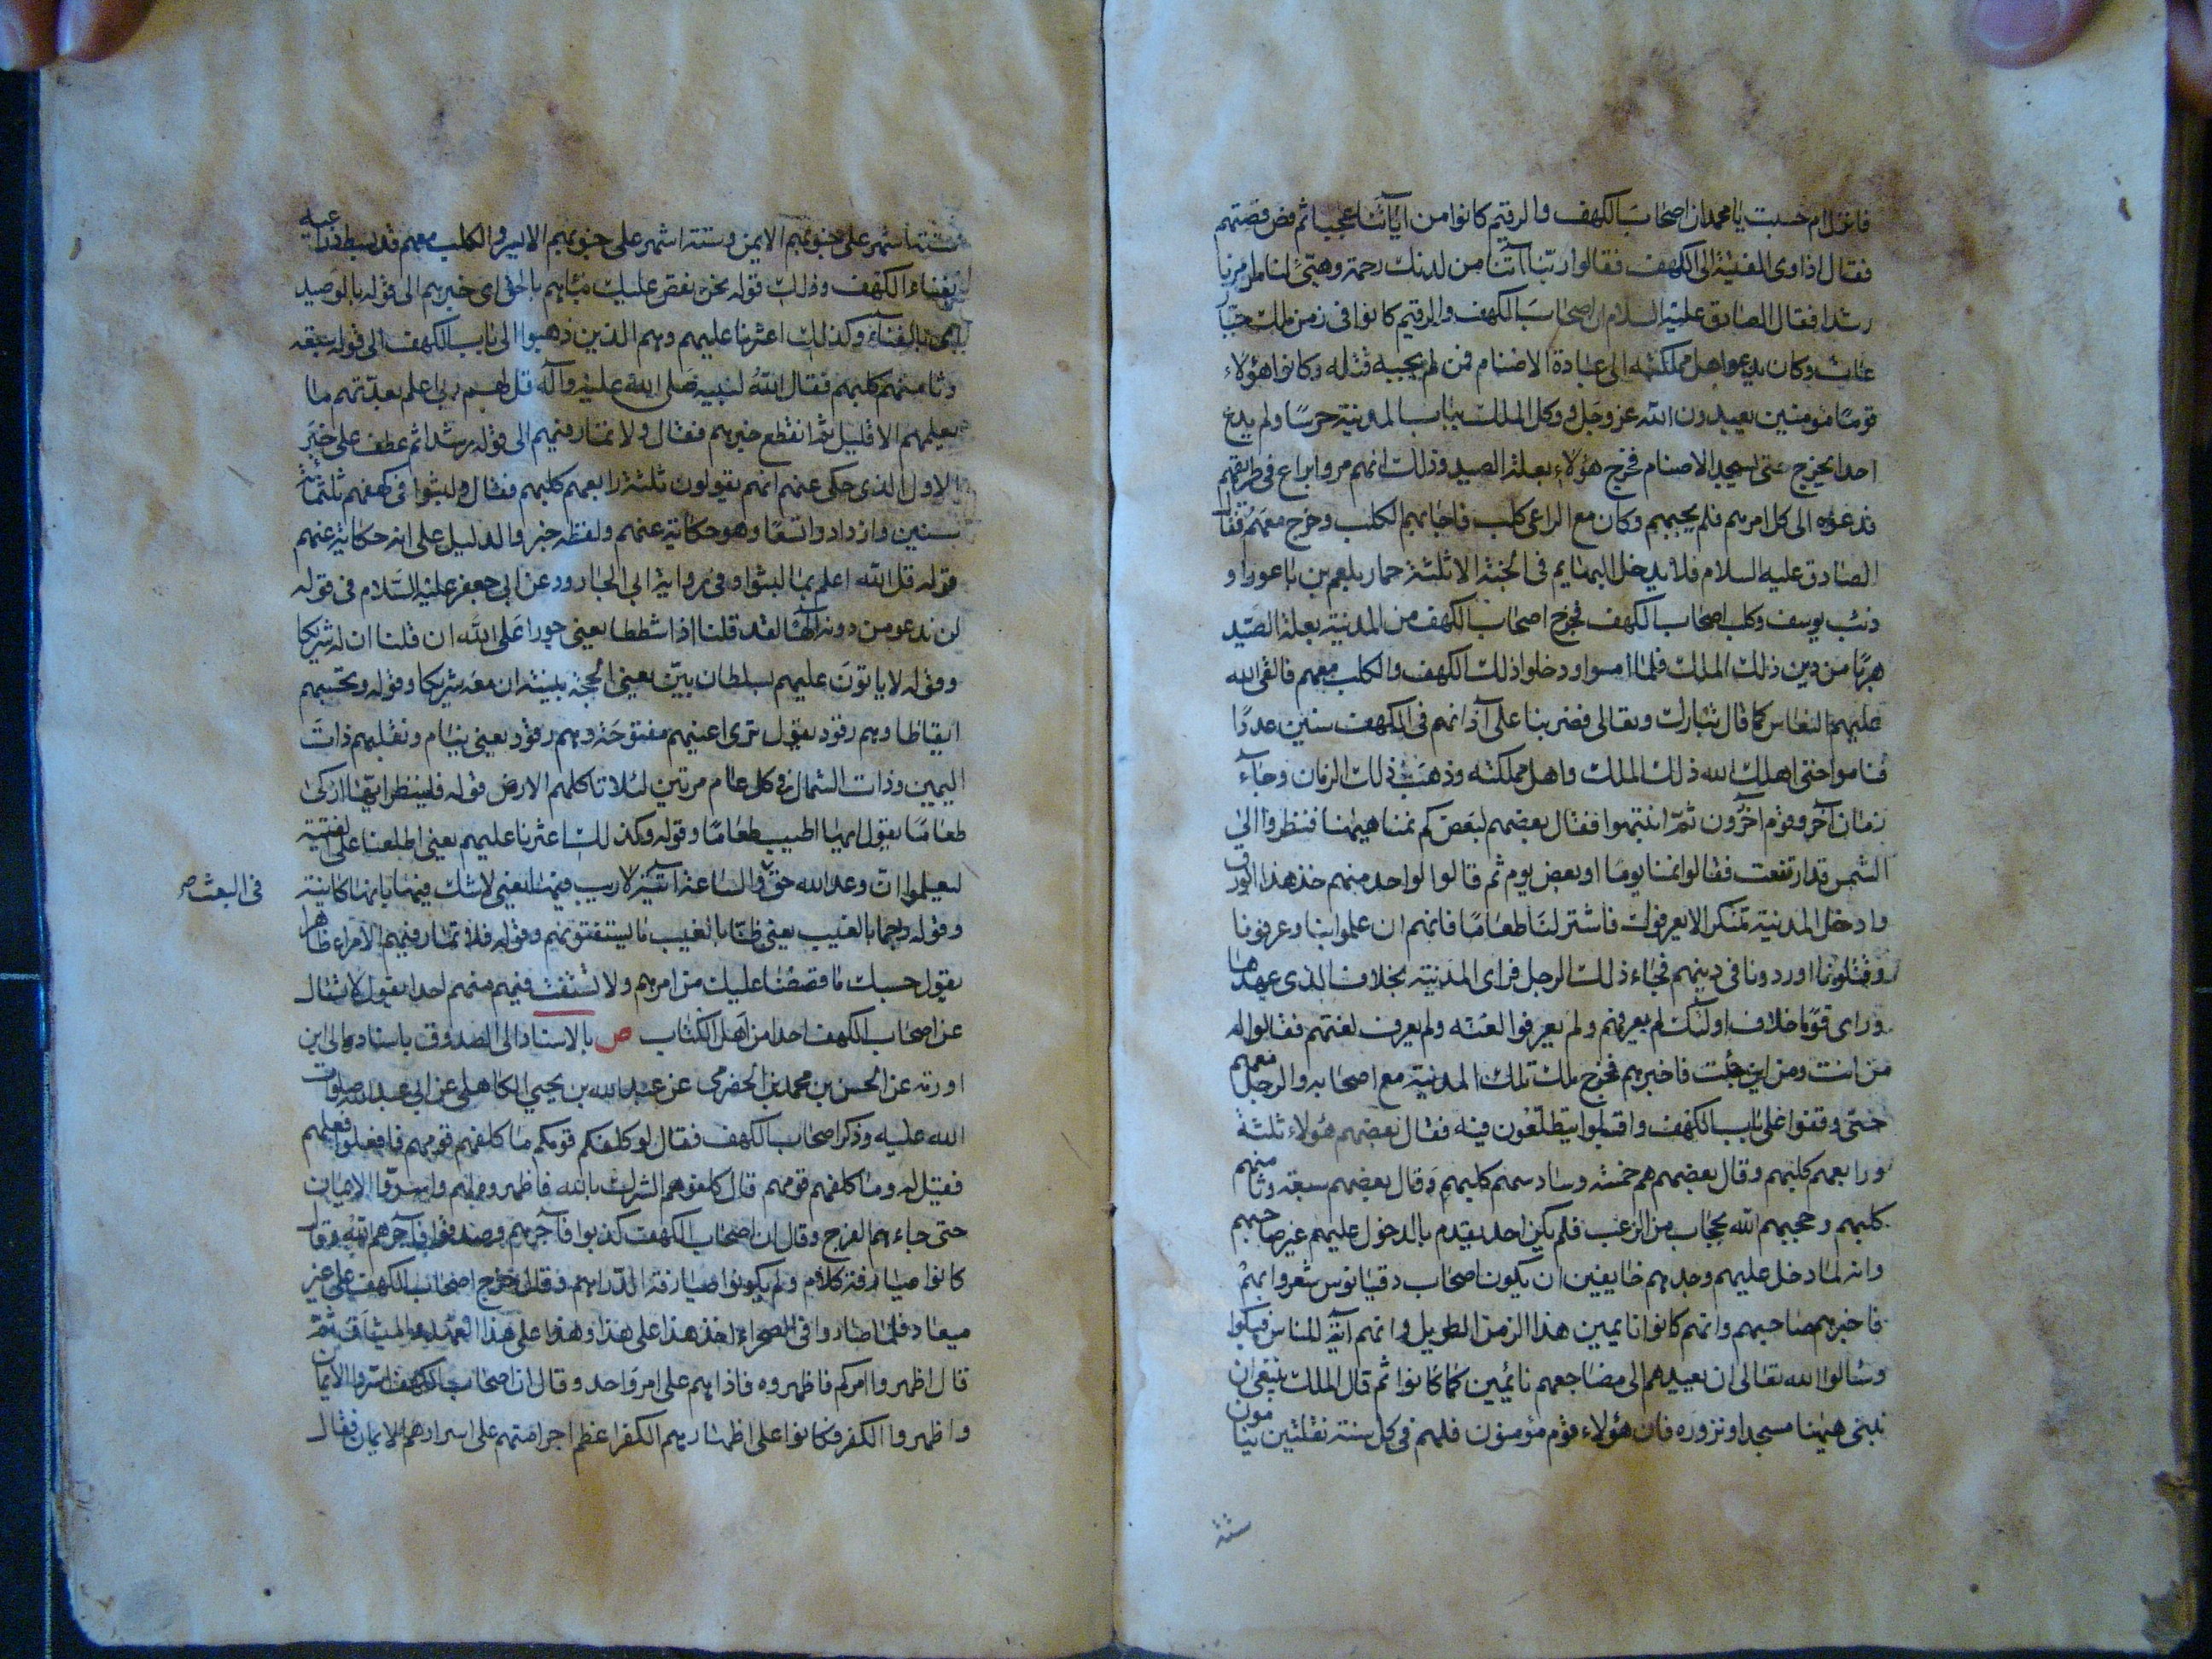 فانزل ام حسبت يا محمد ان اصحاب الكهف والرقيم كانوا من اياتنا عجبا ثم قص قصتهم
فقال اذ اوى الفتية الى الكهف فقالوا ربنا آتنا من لدنك رحمة وهيئ لنا من امرنا
رشدا فقال الصادق عليه السلام ان اصحاب الكهف والرقيم كانوا في زمن ملك جبار
عات وكان يدعو اهل مملكته الى عبادة الاصنام فمن لم يجبه قتله وكانوا هؤلاء
قوما مؤمنين يعبدون الله عز وجل ووكل الملك بباب المدينة حرسا ولم يدع
احدا يخرج حتى يسجد الاصنام فخرج هؤلاء بعلة الصيد وذلك انهم مروا براع في طريقهم
فدعوه الى كل امرهم فلم يجبهم وكان مع الراعي كلب فاجابهم الكلب وخرج معهم فقال
الصادق عليه السلام فلا يدخل البهايم في الجنة الا ثلثة حمار بلعم بن باعورا و
ذئب يوسف وكلب اصحاب الكهف فخرج اصحاب الكهف من المدينة بعلة الصيد
هربا من دين ذلك الملك فلما امسوا ودخلوا ذلك الكهف والكلب معهم فالقى الله
عليهم النعاس كما قال تبارك وتعالى فضربنا على آذانهم في الكهف سنين عددا
فناموا حتى اهلك الله ذلك الملك واهل مملكته وذهب ذلك الزمان وجاء
زمان آخر وقوم آخرون ثم انتبهوا فقال بعضهم لبعض كم نمنا هيهنا فنظروا الى
الشمس قد ارتفعت فقالوا نمنا يوما او بعض يوم ثم قالوا لواحد منهم خذ هذا الورق
وادخل المدينة متنكرا لا يعرفوك فاشتر لنا طعاما فانهم ان علموا بنا وعرفونا
وقتلونا او ردونا في دينهم فجاء ذلك الرجل فراى المدينة بخلاف الذي عهدها
وراى قوما خلاف اولئك لم يعرفهم ولم يعرفوا لغته ولم يعرف لغتهم فقالوا له
من انت ومن اين جئت فاخبرهم فخرج ملك تلك المدينة مع اصحابه والرجل معهم
حتى وقفوا على باب الكهف واقبلوا يتطلعون فيه فقال بعضهم هؤلاء ثلثة
ورابعهم كلبهم وقال بعضهم هم خمسة وسادسهم كلبهم وقال بعضهم سبعة وثامنهم
كلبهم وحجبهم الله بحجاب من الرعب فلم يكن احد يقدم بالدخول عليهم غير صاحبهم
وانه لما دخل عليهم وجدهم خايفين ان يكون اصحاب دقيانوس شعروا بهم
فاخبرهم صاحبهم وانهم كانوا نايمين هذا الزمن الطويل وانهم آية للناس فبكوا
وسالوا الله تعالى ان يعيدهم الى مضاجعهم نائمين كما كانوا ثم قال الملك ينبغي ان
نبني هيهنا مسجدا ونزوره فان هؤلاء قوم مؤمنون فلهم في كل سنة نقلتين ينامون
ستة
ستة اشهر على جنوبهم الايمن وستة اشهر على جنوبهم الايسر والكلب معهم قد بسط ذراعيه
بفناء الكهف وذلك قوله نحن نقص عليك نباهم بالحق اى خبرهم الى قوله بالوصيد
بالفناء وكذلك اعثرنا عليهم وهم الذين ذهبوا الى باب الكهف الى قوله سبعة
وثامنهم كلبهم فقال الله لنبيه صلى الله عليه وآله قل لهم ربي اعلم بعدتهم ما
يعلمهم الا قليل ثم انقطع خبرهم فقال ولا تمار فيهم الى قوله رشدا ثم عطف على خبر
الاول الذي حكى عنهم انهم يقولون ثلثة رابعهم كلبهم فقال ولبثوا في كهفهم ثلثمائة
سنين وازدادوا تسعا وهو حكاية عنهم ولفظه خبر والدليل على انه حكاية عنهم
قوله قل الله اعلم بما لبثوا وفي رواية ابي الجارود عن ابي جعفر عليه السلام في قوله
لن ندعو من دونه الها لقد قلنا اذا شططا يعني جورا على الله ان قلنا ان له شريكا
وقوله لا ياتون عليهم بسلطان بين يعني الحجة بينة ان معه شريكا وقوله وتحسبهم
ايقاظا وهم رقود يقول ترى اعينهم مفتوحة وهم رقود يعني نيام ونقلبهم ذات
اليمين وذات الشمال في كل عام مرتين لئلا تاكلهم الارض قوله فلينظر ايها ازكى
طعاما يقول ايها اطيب طعاما وقوله وكذلك اعثرنا عليهم يعني اطلعنا على الفتية
ليعلموا ان وعد الله حق والساعة آتية لا ريب فيها يعني لا شك فيها بانها كاينة
في البعث صح
وقوله رجما بالغيب يعني ظنا بالغيب ما يستفتونهم وقوله فلا تمار فيهم الا مراء ظاهرا
يقول حسبك ما قصصنا عليك من امرهم ولا تستفت فيهم منهم احدا يقول لا تسال
عن اصحاب الكهف احدا من اهل الكتاب ص بالاسناد الى الصدوق باسناده الى ابن
اورمه عن الحسن بن محمد بن الحضرمي عن عبد الله بن يحيي الكاهلي عن ابي عبد الله صلوات
الله عليه وذكر اصحاب الكهف فقال لو كلفكم قومكم ما كلفهم قومهم فافعلوا فعلهم
فقيل له وما كلفهم قومهم قال كلفوهم الشرك بالله فاظهروه لهم واسروا الايمان
حتى جاءهم الفرج وقال ان اصحاب الكهف كذبوا فآجرهم وصدقوا فآجرهم الله وقال
كانوا صيارفة كلام ولم يكونوا صيارفة الدراهم وقال خرج اصحاب الكهف على غير
ميعاد فلما صاروا في الصحراء اخذ هذا على هذا وهذا على هذا العهد والميثاق ثم
قال اظهروا امركم فاظهروه فاذا هم على امر واحد وقال ان اصحاب الكهف اسروا الايمان
واظهروا الكفر فكانوا على اظهارهم الكفر اعظم اجرا منهم على اسرارهم الايمان فقال